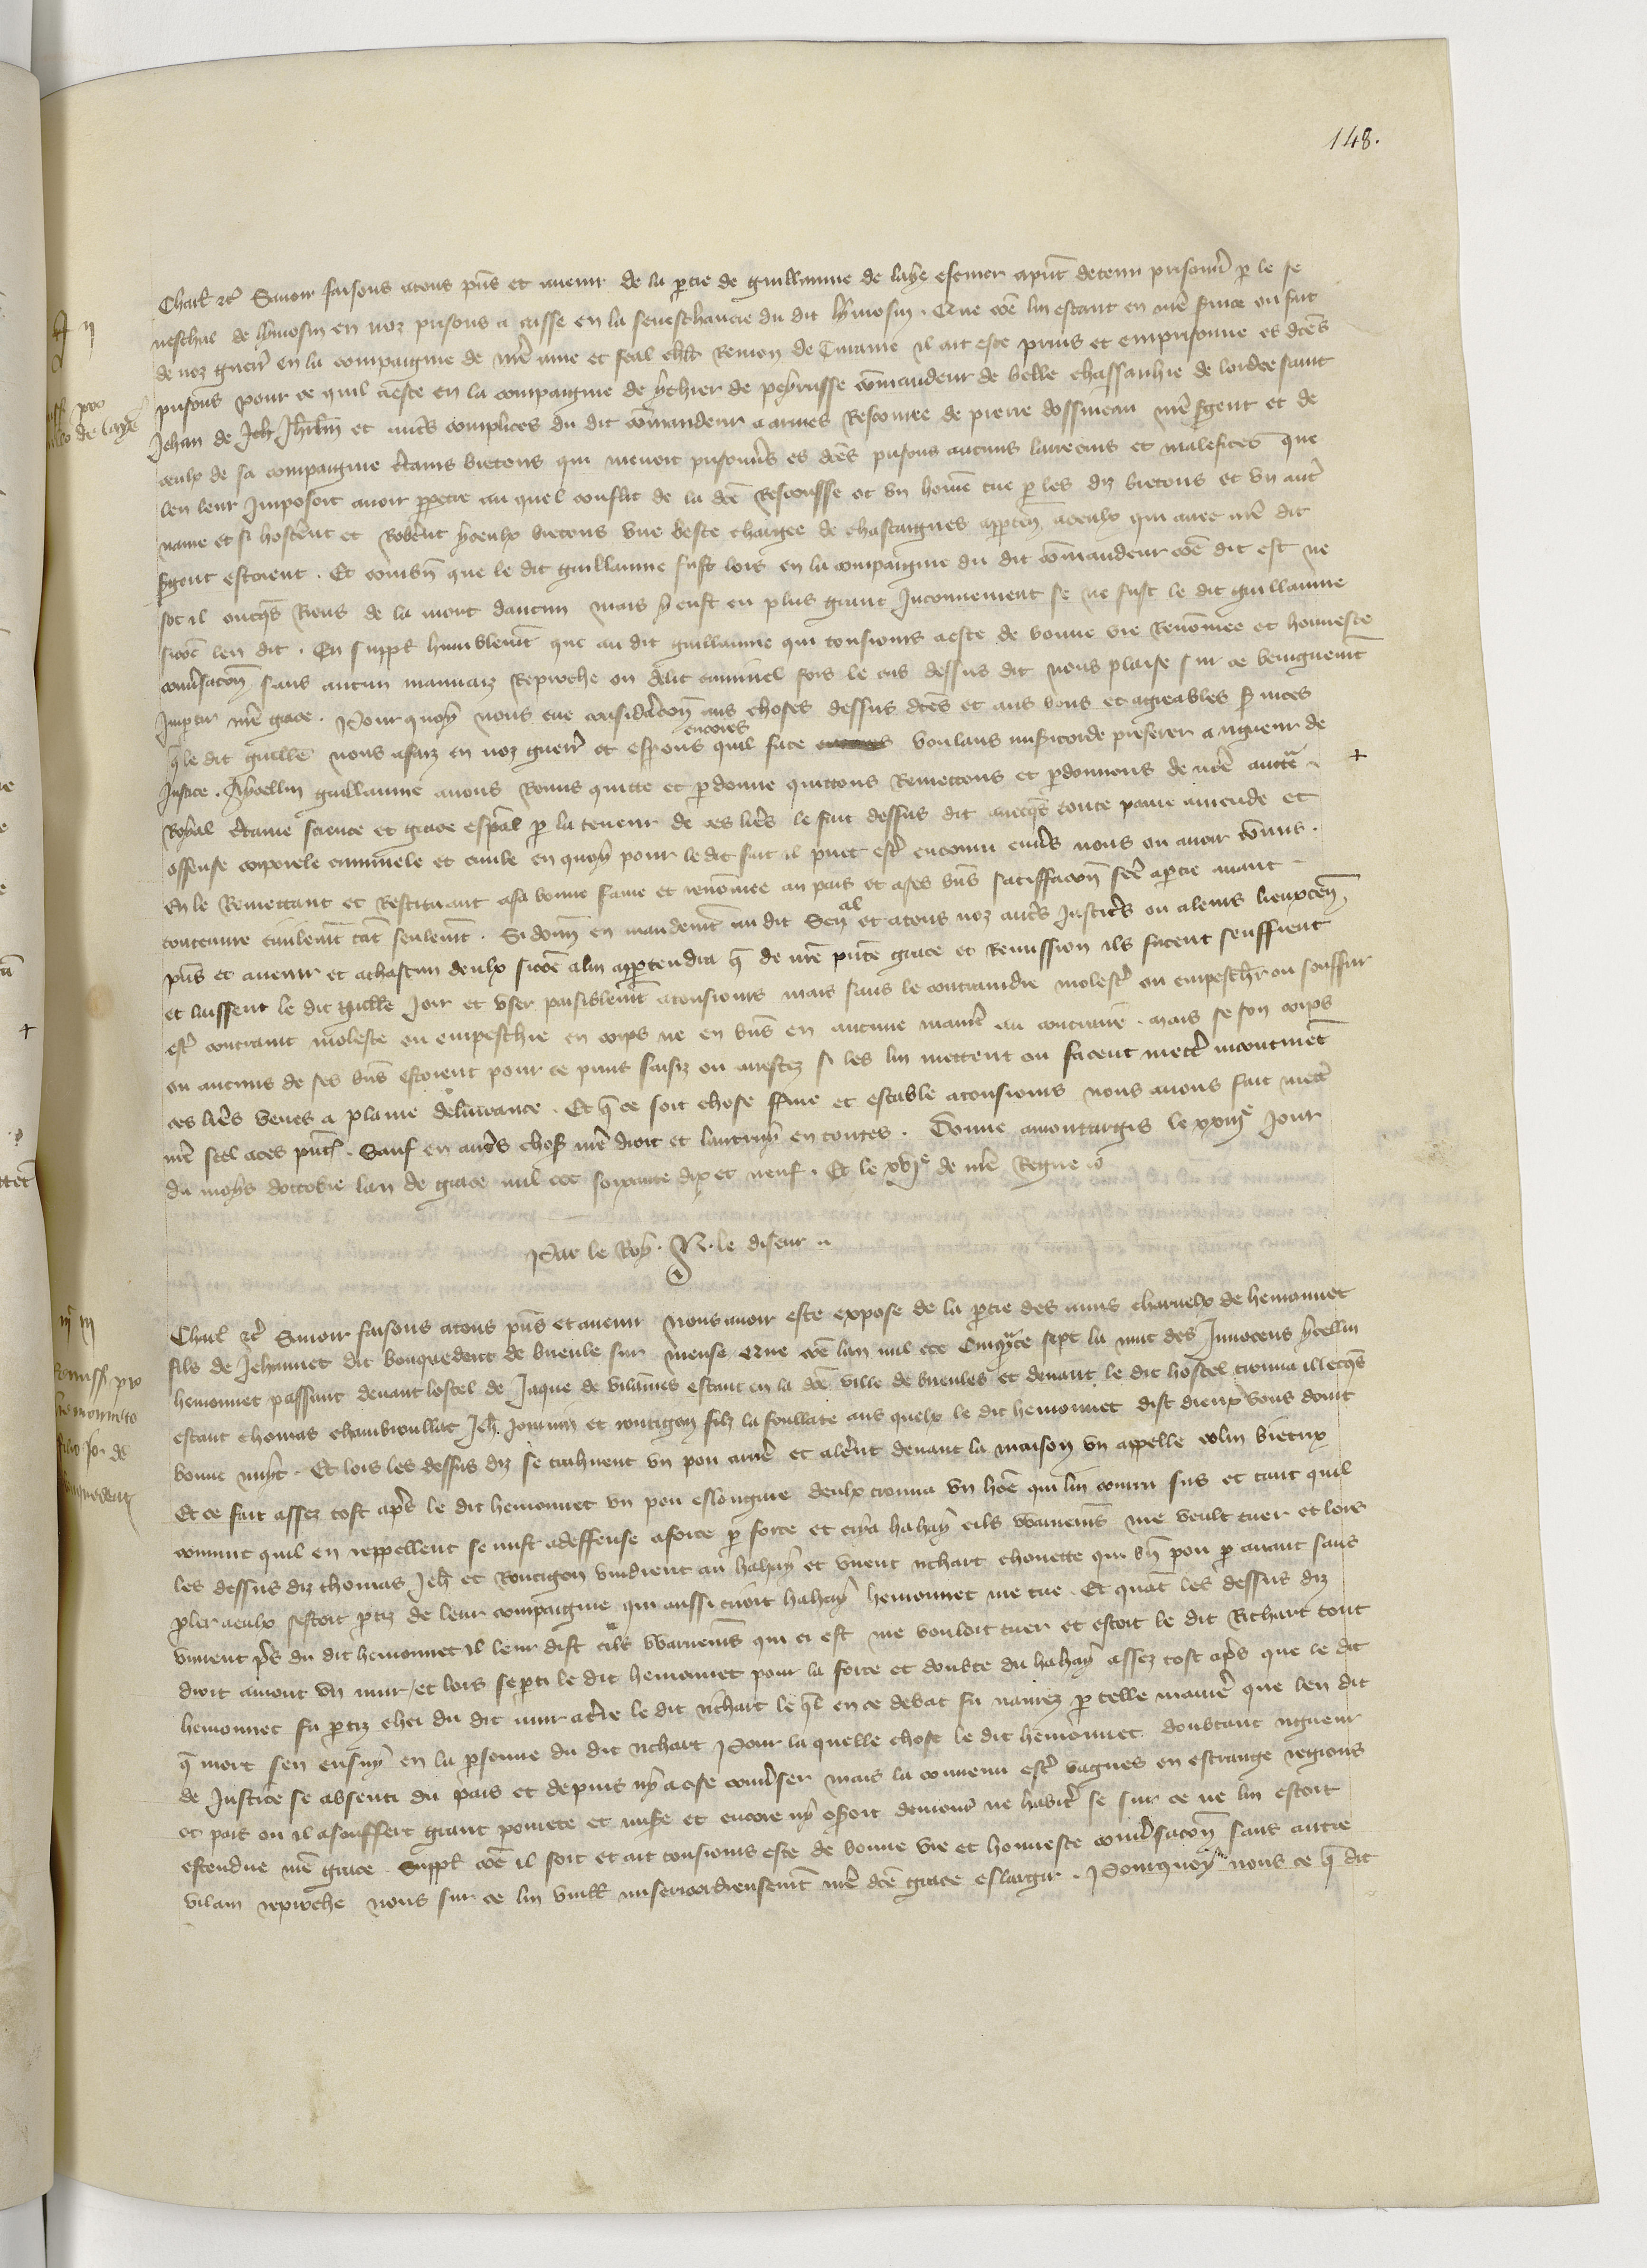 148.
Charl etc Savoir faisons a tous pns et avenir de la ptie de guillaume de laye escuier a pnt detenu prisonn p le se
neschal de lymosin en noz prisons a risse en la seneschaucie du dit lymosin. Que coe lui estant en nre suice ou fait
de noz guerr en la compaignie de nre ame et feal chlr Remon de Turaine il ait este prins et emprisonne es dces
prisons pour ce quil a este en la compaignie de ythier de peyrusse comandeur de belle chassanhie de lordre saint
Jehan de Jehr Jherlm et autrs complices du dit comandeur a armes Rescourre de pierre dossineau nre sgent et de
ceulx de sa compaignie ctains bretons qui menoit prisonnrs es dces prisons aucuns larrecins et malefices que
len leur Imposoit avoir ppetre au quel conflit de la dce Rescousse ot un home tue p les diz bretons et un autr
navre et si hosterent et Roberent yceulx bretons une beste chargee de chastaignes apptens a ceulx qui avec nre dit
sgent estoient. Et combn que le dit guillaume fust lors en la compaignie du dit comandeur coe dit est ne
sot il oncqs Riens de la mort daucun mais y eust eu plus grant Inconvenient se ne fust le dit guillaume
sicoe len dit. En suppl humblemt que au dit guillaume qui tousiours a este de bonne vie Renomee et honneste
convsacon sans aucun mauvaiz Reproche ou delit criminel fors le cas dessus dit nous plaise sur ce benignemt
Impartir nre grace. Pour quoy nous eue consideracon aus choses dessus dces et aus bons et agreables svices
q le dit guille nous a faiz en noz guerr et espons quil face encores voulans misicorde preferer a rigueur de
Justice. A ycellui guillaume avons Remis quitte et pdonne quittons Remettons et pdonnons de nre aucte
Royal ctaine science et grace espal p la teneur de ces lres le fait dessus dit avecqs toute paine amende et
offense corporele criminele et civile en quoy pour le dit fait il puet estr encouru envs nous ou avoir comis.
En le Remettant et Restituant a sa bonne fame et renomee au pais et a ses bns satisfacon fce a ptie avant
toutevuie civilemt tat seulemt. Si donn en mandemt au dit Senal et a tous noz autrs Justicrs ou a leurs lieuxtens
pns et avenir et a chascun deulx sicoe a lui apptendra q de nre pnte grace et Remission ils facent seuffrent
et laissent le dit guille Joir et user paisiblemt a tousiours mais sans le contraindre molestr ou empeschr ou souffrir
estr contraint moleste ou empeschie en corps ne en bns en aucune manre au contraire. mais se son corps
ou aucuns de ses bns estoient pour ce prins saisiz ou arrestez si les lui mettent ou facent mettr incontinet
ces lres veues a plaine delivrance. Et q ce soit chose fme et estable a tousiours nous avons fait mettr
nre seel a ces pntes. Sauf en autrs choses nre droit et lautruy en toutes. Donne a montargis le xxiiije Jour
du moys doctobre lan de grace mil ccc soixante dix et neuf. Et le xvje de nre Regne
Par le Roy. N. le diseur
Charl etc Savoir faisons a tous pns et avenir nous avoir este expose de la ptie des amis charnelx de hemonnet
filz de Jehannet dit bouquedent de bueule sur meuse Que coe lan mil ccc Cinqte sept la nuit des Innocens ycellui
hemonnet passant devant lostel de Jaque de vilaines estant en la dce ville de bueules et devant le dit hostel trouva illecqs
estant thomas chambroullat Jeh Journin et rontigon filz la foullate aus quelx le dit hemonnet dist dieux vous doint
bonne nuyt. Et lors les dessus diz se trahirent un pou arrre et alerent devant la maison un appelle colin bietrix
Et ce fait assez tost aprs le dit hemonnet un pou eslongnie deulx trouva un hoe qui lui couru sus et tant quil
convint quil en reppellent se mist a deffense a force p force et crya hahay cils Warnemens me veult tuer et lors
les dessus diz thomas Jeh et Rontigon vindrent au hahay et virent richart chouette qui un pou p avant sans
pler a eulx sestoit ptiz de leur compaignie qui aussi crioit hahay hemonnet me tue. Et quat les dessus diz
vinrent prs du dit hemonnet il leur dist cils Warnemens qui ci est me vouloit tuer et estoit le dit Richart tout
droit amont un mur / et lors se pti le dit hemonnet pour la force et doubte du hahay assez tost aprs que le dit
hemonnet fu ptiz chei du dit mur a tre le dit richart le ql en ce debat fu navrez p telle manre que len dit
q mort sen ensuy en la psonne du dit richart Pour la quelle chose le dit hemonnet doubtant rigueur
de Justice se absenti du pais et depuis ny a ose convser mais la convenu estr vagues en estrange regions
et pais ou il a souffert grant povrete et mise et encore ny oseroit demourer ne habitr se sur ce ne lui estoit
estendue nre grace. Suppl coe il soit et ait tousiours este de bonne vie et honneste convsacon sans autre
vilain reproche nous sur ce lui vuill misericordieusemt nre dce grace eslargir. Pourquoy nous ce q dit